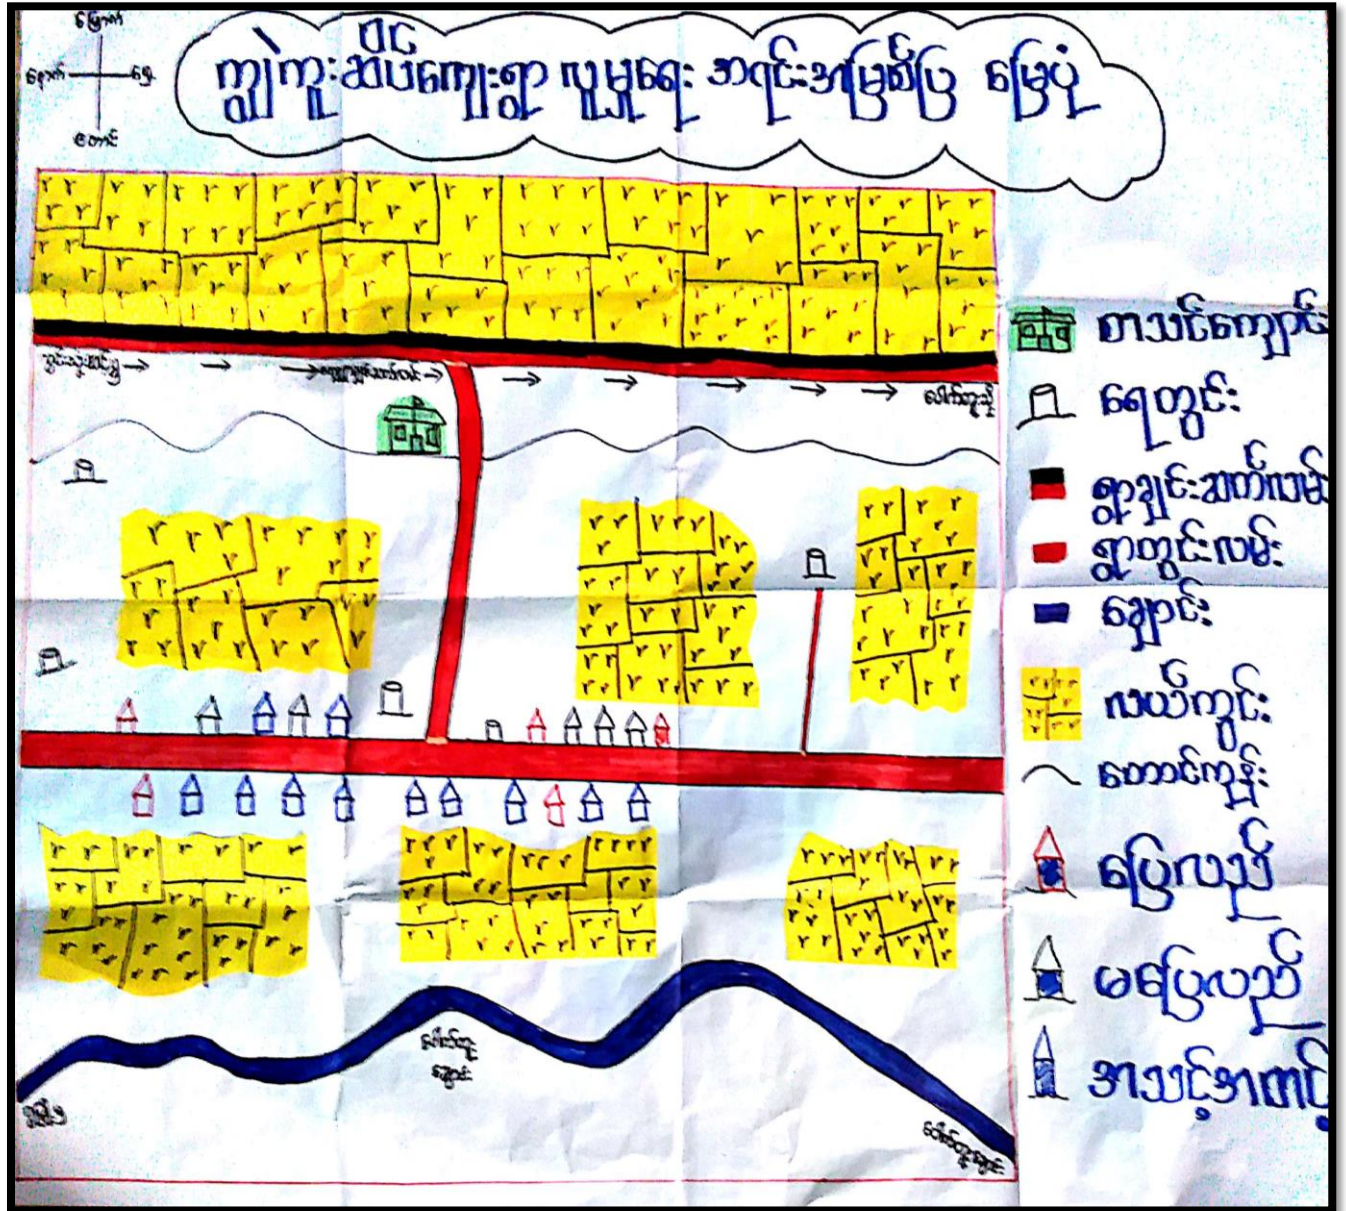 မြောက်
နောက် ရှေ့
တောင်
ကျွဲကူးဆိပ်ကျေးရွာ လူမှုရေး အရင်းအမြစ်ပြ မြေပုံ
ပေါက်တူးသို့
စာသင်ကျောင်း
ရေတွင်း
ရွာချင်းဆက်လမ်း
ရွာတွင်းလမ်း
ချောင်း
လယ်ကွင်း
တောင်ကုန်း
ပြေလည်
မပြေလည်
အသင့်အတင့်
ပေါက်တူး
ချောင်း
ပေါက်တူးချောင်း